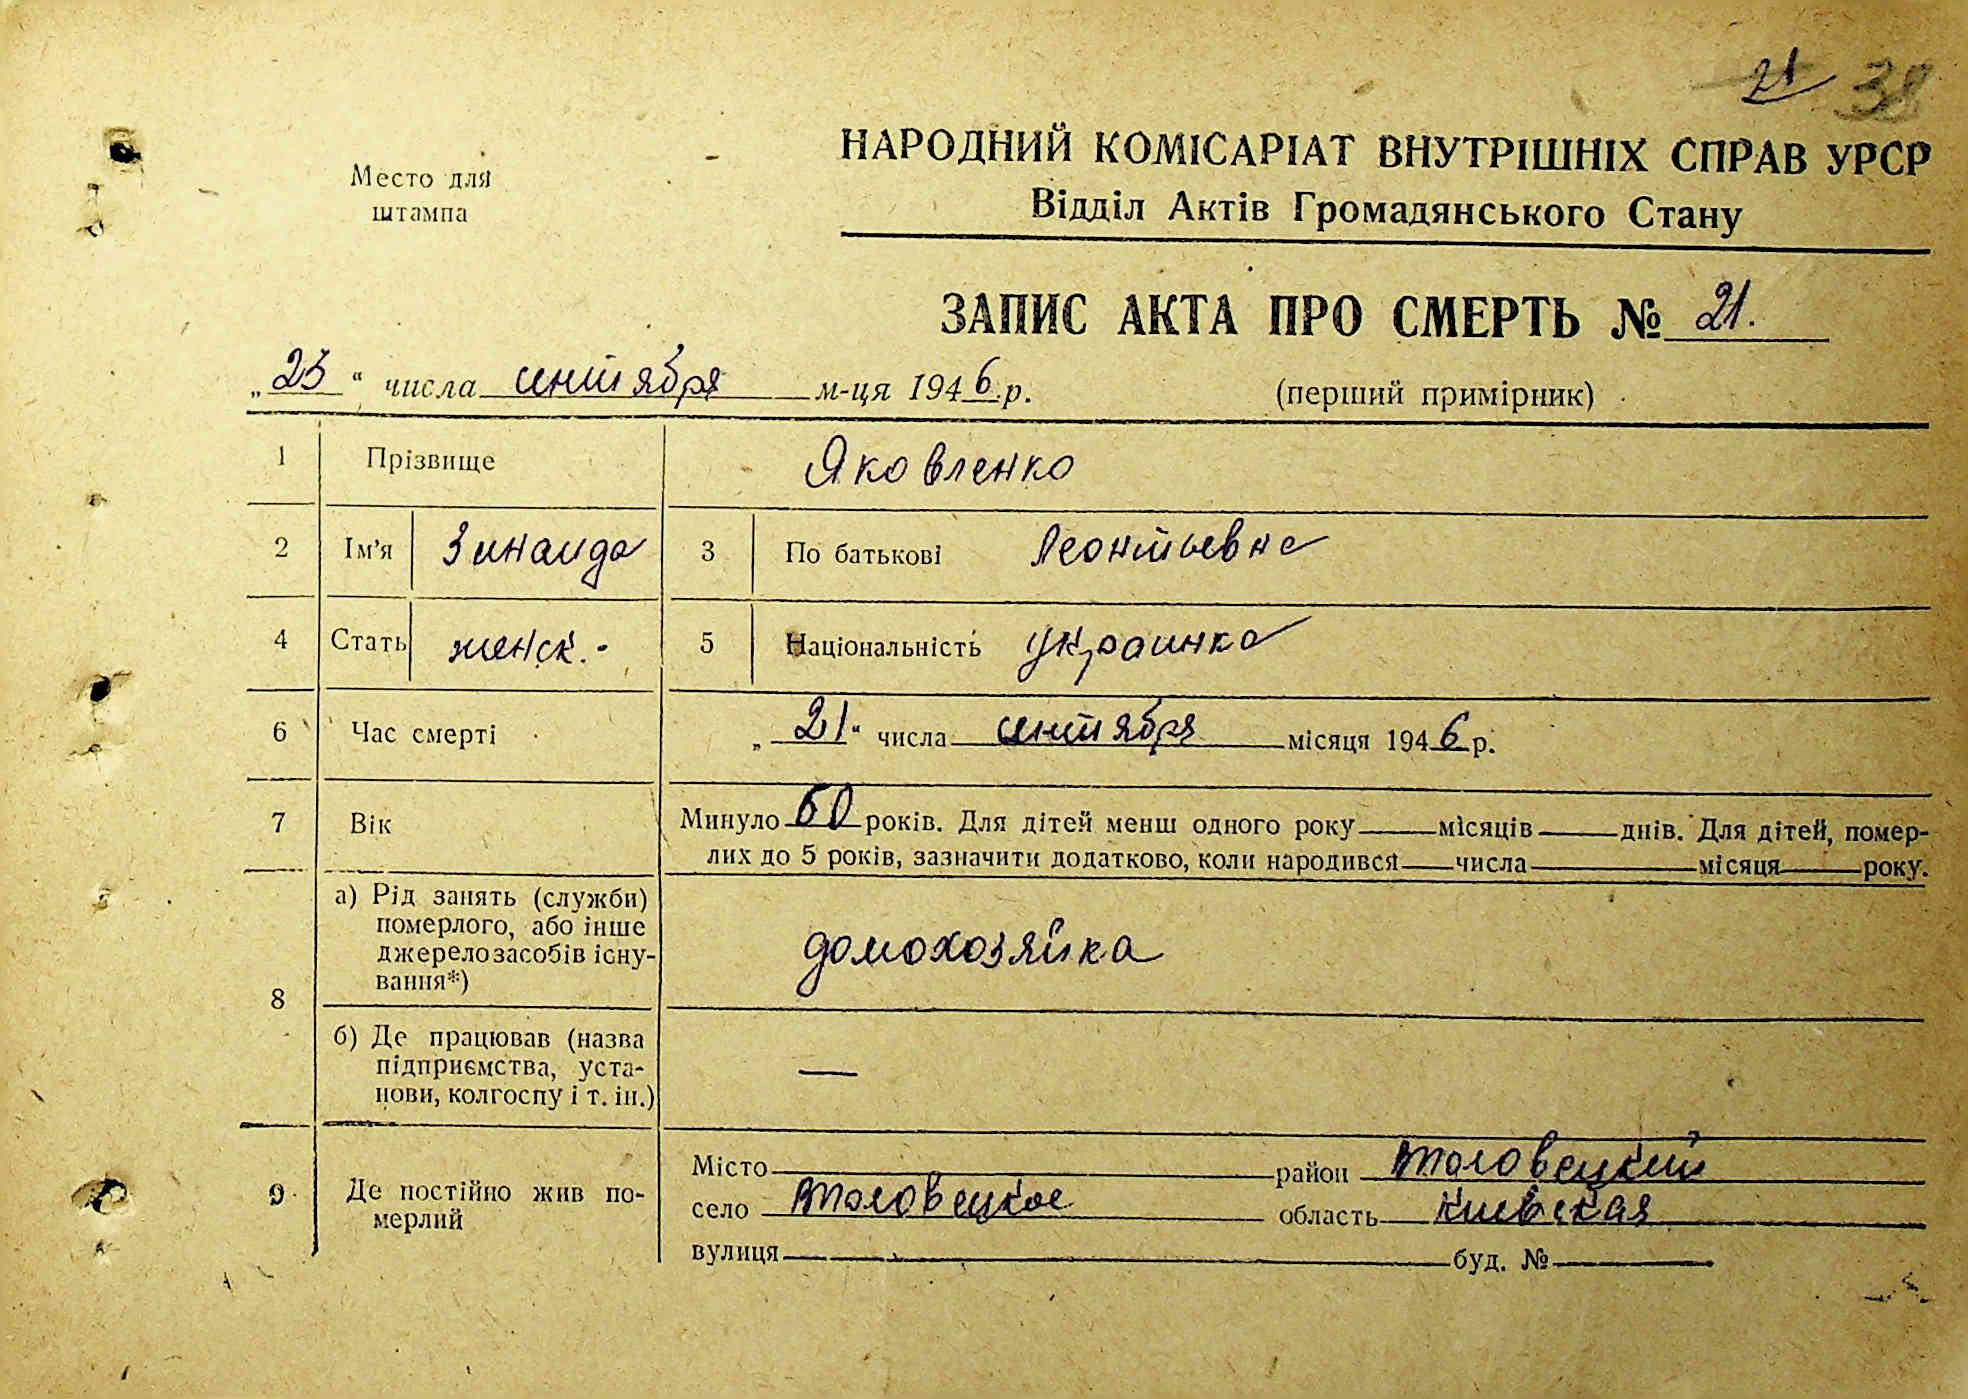 21 38
Место для
штампа
НАРОДНИЙ КОМІСАРІАТ ВНУТРІШНІХ СПРАВ УРСР
Відділ Актів Громадянського Стану
ЗАПИС АКТА ПРО СМЕРТЬ № 21.
„23“ числа сентября м-ця 1946 р. (перший примірник)
1 Прізвище Яковленко
2 Ім'я Зинаида 3 По батькові Леонтьевна
4 Стать женск. 5 Національність украинка
6 Час смерті „21“ числа сентября місяця 1946 р.
7 Вік Минуло 60 років. Для дітей менш одного року місяців днів. Для дітей, помер-
лих до 5 років, зазначити додатково, коли народився числа місяця року.
8 а) Рід занять (служби)
померлого, або інше
джерело засобів існу-
вання*) домохозяйка
б) Де працював (назва
підприємства, уста-
нови, колгоспу і т. ін.) —
9 Де постійно жив по-
мерлий
Місто район
село область Киевская
вулиця буд. №